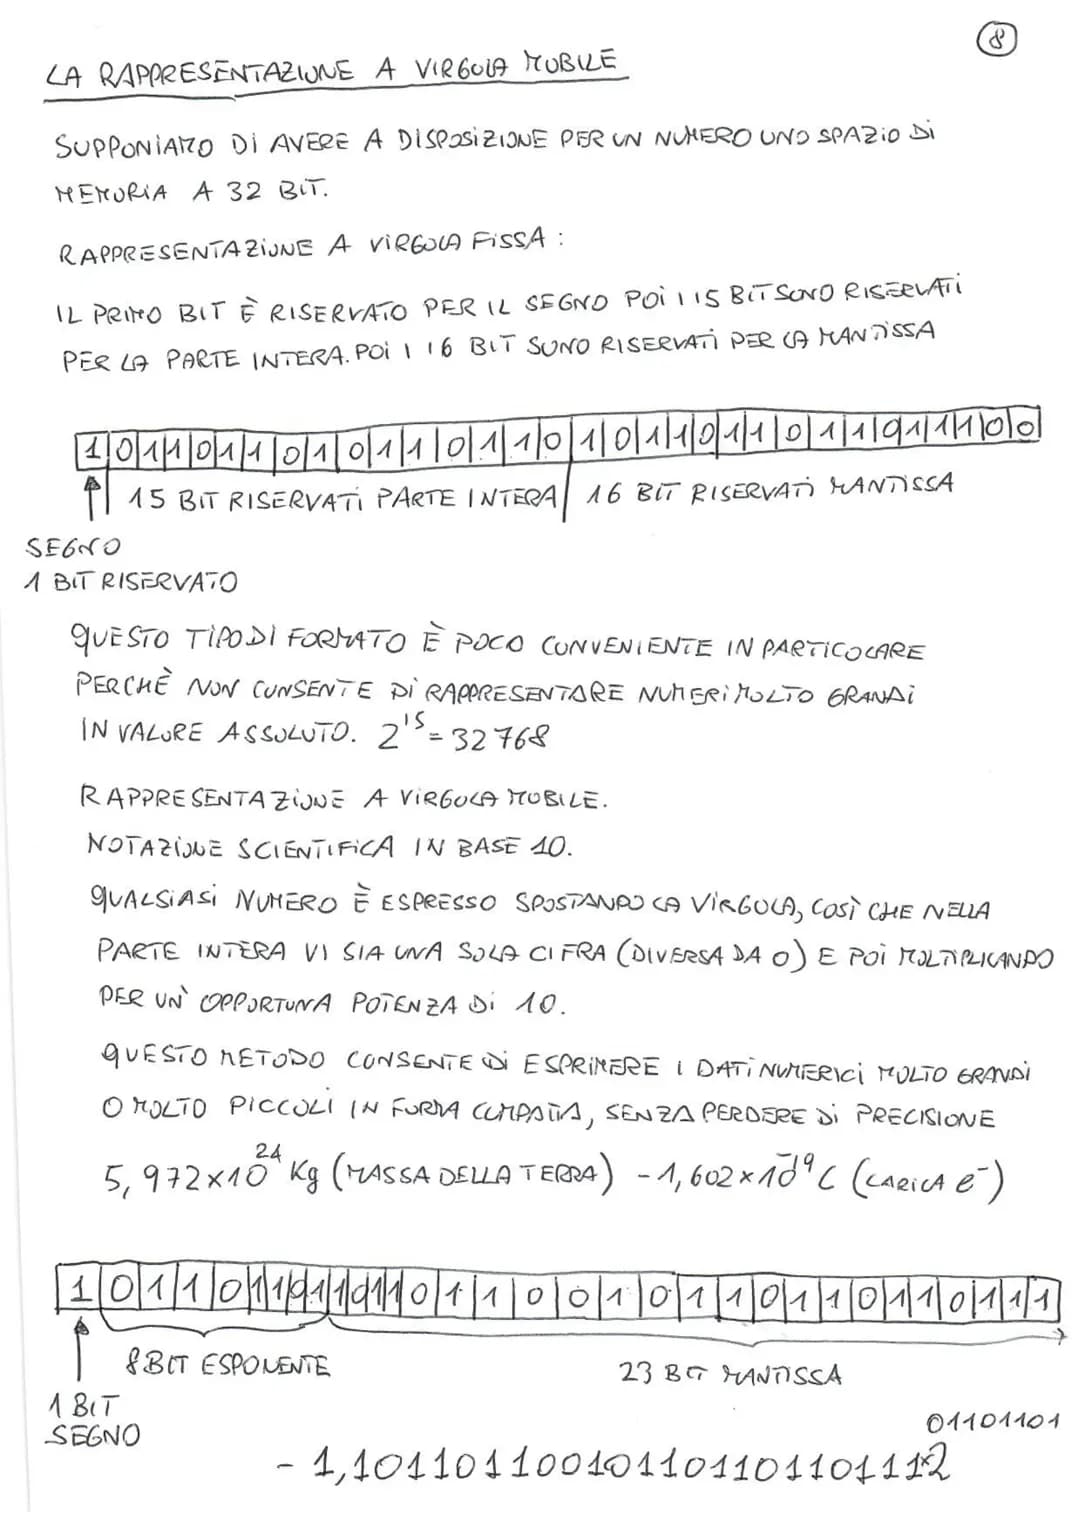 8
LA RAPPRESENTAZIONE A VIRGOLA MOBILE
SUPPONIAMO DI AVERE A DISPOSIZIONE PER UN NUMERO UNO SPAZIO DI
MEMORIA A 32 BIT.
RAPPRESENTAZIONE A VIRGOLA FISSA :
IL PRIMO BIT È RISERVATO PER IL SEGNO POI I 15 BIT SONO RISERVATI
PER LA PARTE INTERA. POI I 16 BIT SONO RISERVATI PER LA MANTISSA
15 BIT RISERVATI PARTE INTERA 16 BIT RISERVATI MANTISSA
SEGNO
1 BIT RISERVATO
QUESTO TIPO DI FORMATO È POCO CONVENIENTE IN PARTICOLARE
PERCHÈ NON CONSENTE DI RAPPRESENTARE NUMERI MOLTO GRANDI
IN VALORE ASSOLUTO. 2¹⁵ = 32768
RAPPRESENTAZIONE A VIRGOLA MOBILE.
NOTAZIONE SCIENTIFICA IN BASE 10.
QUALSIASI NUMERO È ESPRESSO SPOSTANDO LA VIRGOLA, COSÌ CHE NELLA
PARTE INTERA VI SIA UNA SOLA CIFRA (DIVERSA DA 0) E POI MOLTIPLICANDO
PER UN' OPPORTUNA POTENZA DI 10.
QUESTO METODO CONSENTE DI ESPRIMERE I DATI NUMERICI MOLTO GRANDI
O MOLTO PICCOLI IN FORMA COMPATTA, SENZA PERDERE DI PRECISIONE
5,972×10²⁴ Kg (MASSA DELLA TERRA) -1,602×10⁻¹⁹ C (CARICA e⁻)
8 BIT ESPONENTE 23 BIT MANTISSA
1 BIT
SEGNO
01101101